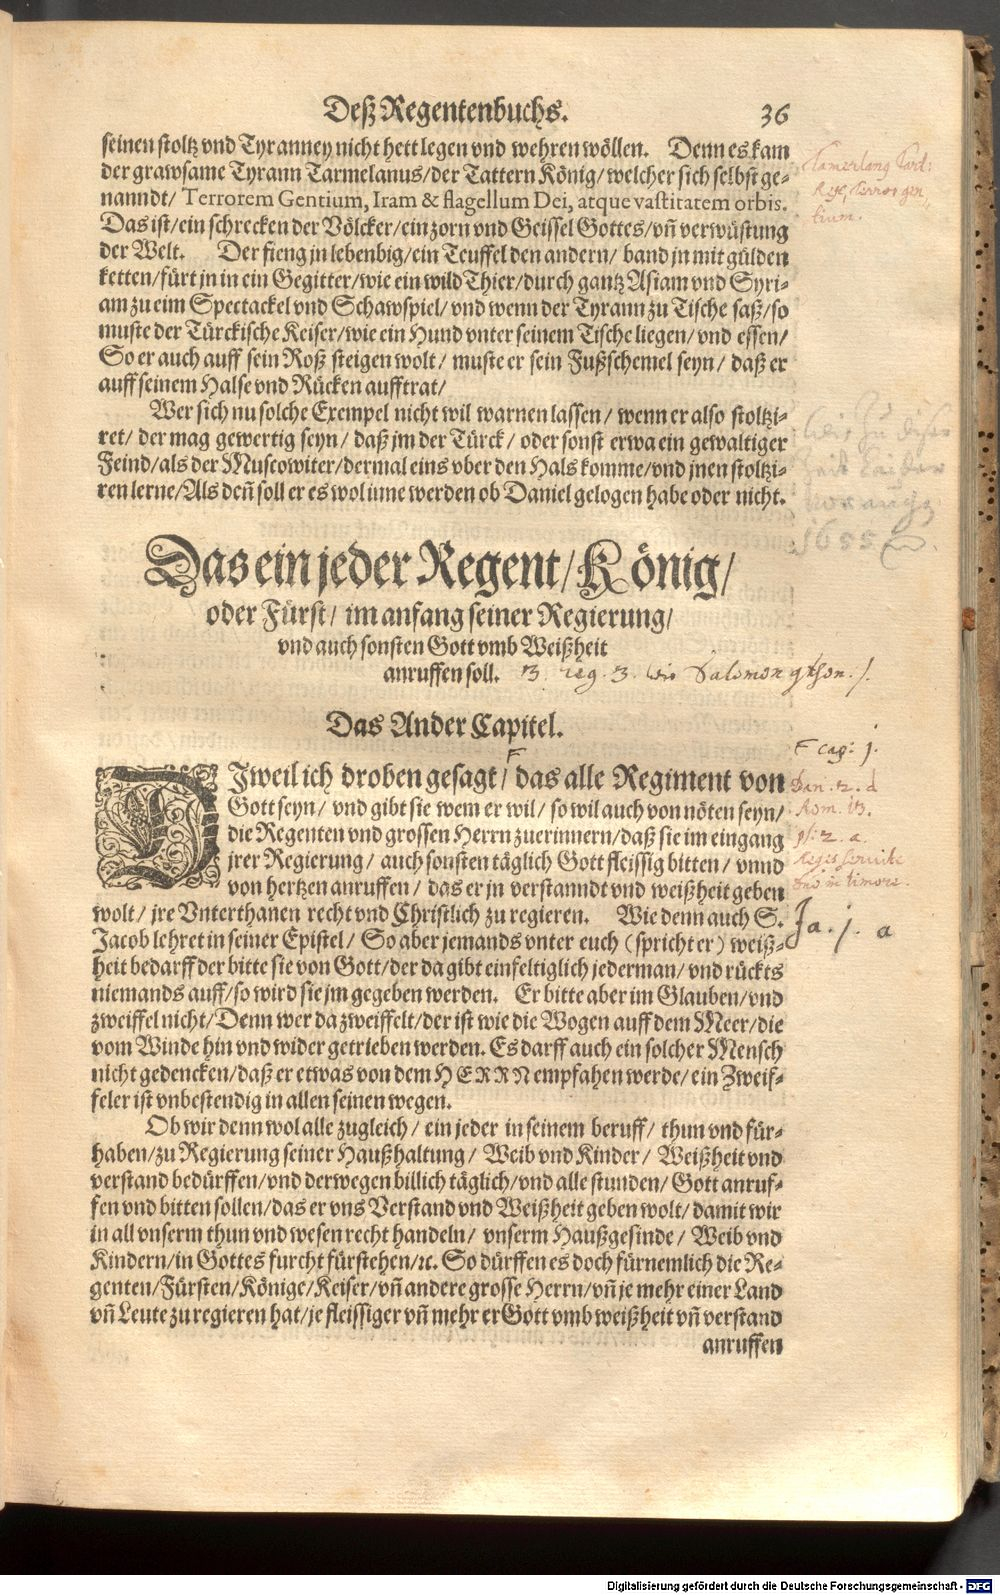 Deß Regentenbuchs. 36
seinen stoltz vnd Tyranney nicht hett legen vnd wehren wöllen. Denn es kam
der grawsame Tyrann Tarmelanus/ der Tattern König/ welcher sich selbst ge-
nanndt/ Terrorem Gentium, Iram & flagellum Dei, atque vastitatem orbis.
Das ist/ ein schrecken der Völcker/ ein zorn vnd Geissel Gottes/ vñ verwüstung
der Welt. Der fieng jn lebenbig/ ein Teuffel den andern/ band jn mit gülden
ketten/ fürt jn in ein Gegitter/ wie ein wild Thier/ durch gantz Asiam vnd Syri-
am zu eim Spectackel vnd Schawspiel/ vnd wenn der Tyrann zu Tische saß/ so
muste der Türckische Keiser/ wie ein Hund vnter seinem Tische liegen/ vnd essen/
So er auch auff sein Roß steigen wolt/ muste er sein Fußschemel seyn/ daß er
auff seinem Halse vnd Rücken aufftrat/
Wer sich nu solche Exempel nicht wil warnen lassen/ wenn er also stoltzi-
ret/ der mag gewertig seyn/ daß jm der Türck/ oder sonst etwa ein gewaltiger
Feind/ als der Muscowiter/ dermal eins vber den Hals komme/ vnd jnen stoltzi-
ren lerne/ Als deñ soll er es wol inne werden ob Daniel gelogen habe oder nicht.
1655
Das ein jeder Regent/ König/
oder Fürst/ im anfang seiner Regierung/
vnd auch sonsten Gott vmb Weißheit
anruffen soll. 3. reg. 3. wie Salomon gthon.
Das Ander Capitel.
F cap: 1.
DIweil ich droben gesagt/ F das alle Regiment von
Dan. 2. d
Gott seyn/ vnd gibt sie wem er wil/ so wil auch von nöten seyn/
Rom. 13.
die Regenten vnd grossen Herrn zuerinnern/ daß sie im eingang
ps: 2. a.
jrer Regierung/ auch sonsten täglich Gott fleissig bitten/ vnnd
Reges servite
von hertzen anruffen/ das er jn verstanndt vnd weißheit geben
dno in timore.
wolt/ jre Vnterthanen recht vnd Christlich zu regieren. Wie denn auch S.
Ja. 1. a
Jacob lehret in seiner Epistel/ So aber jemands vnter euch (spricht er) weiß-
heit bedarff der bitte sie von Gott/ der da gibt einfeltiglich jederman/ vnd rückts
niemands auff/ so wird sie jm gegeben werden. Er bitte aber im Glauben/ vnd
zweiffel nicht/ Denn wer da zweiffelt/ der ist wie die Wogen auff dem Meer/ die
vom Winde hin vnd wider getrieben werden. Es darff auch ein solcher Mensch
nicht gedencken/ daß er etwas von dem HERRN empfahen werde/ ein Zweif-
feler ist vnbestendig in allen seinen wegen.
Ob wir denn wol alle zugleich/ ein jeder in seinem beruff/ thun vnd für-
haben/ zu Regierung seiner Haußhaltung/ Weib vnd Kinder/ Weißheit vnd
verstand bedürffen/ vnd derwegen billich täglich/ vnd alle stunden/ Gott anruf-
fen vnd bitten sollen/ das er vns Verstand vnd Weißheit geben wolt/ damit wir
in all vnserm thun vnd wesen recht handeln/ vnserm Haußgesinde/ Weib vnd
Kindern/ in Gottes furcht fürstehen/ ꝛc. So dürffen es doch fürnemlich die Re-
genten/ Fürsten/ Könige/ Keiser/ vñ andere grosse Herrn/ vñ je mehr einer Land
vñ Leute zu regieren hat/ je fleissiger vñ mehr er Gott vmb weißheit vñ verstand
anruffen
Digitalisierung gefördert durch die Deutsche Forschungsgemeinschaft - DFG